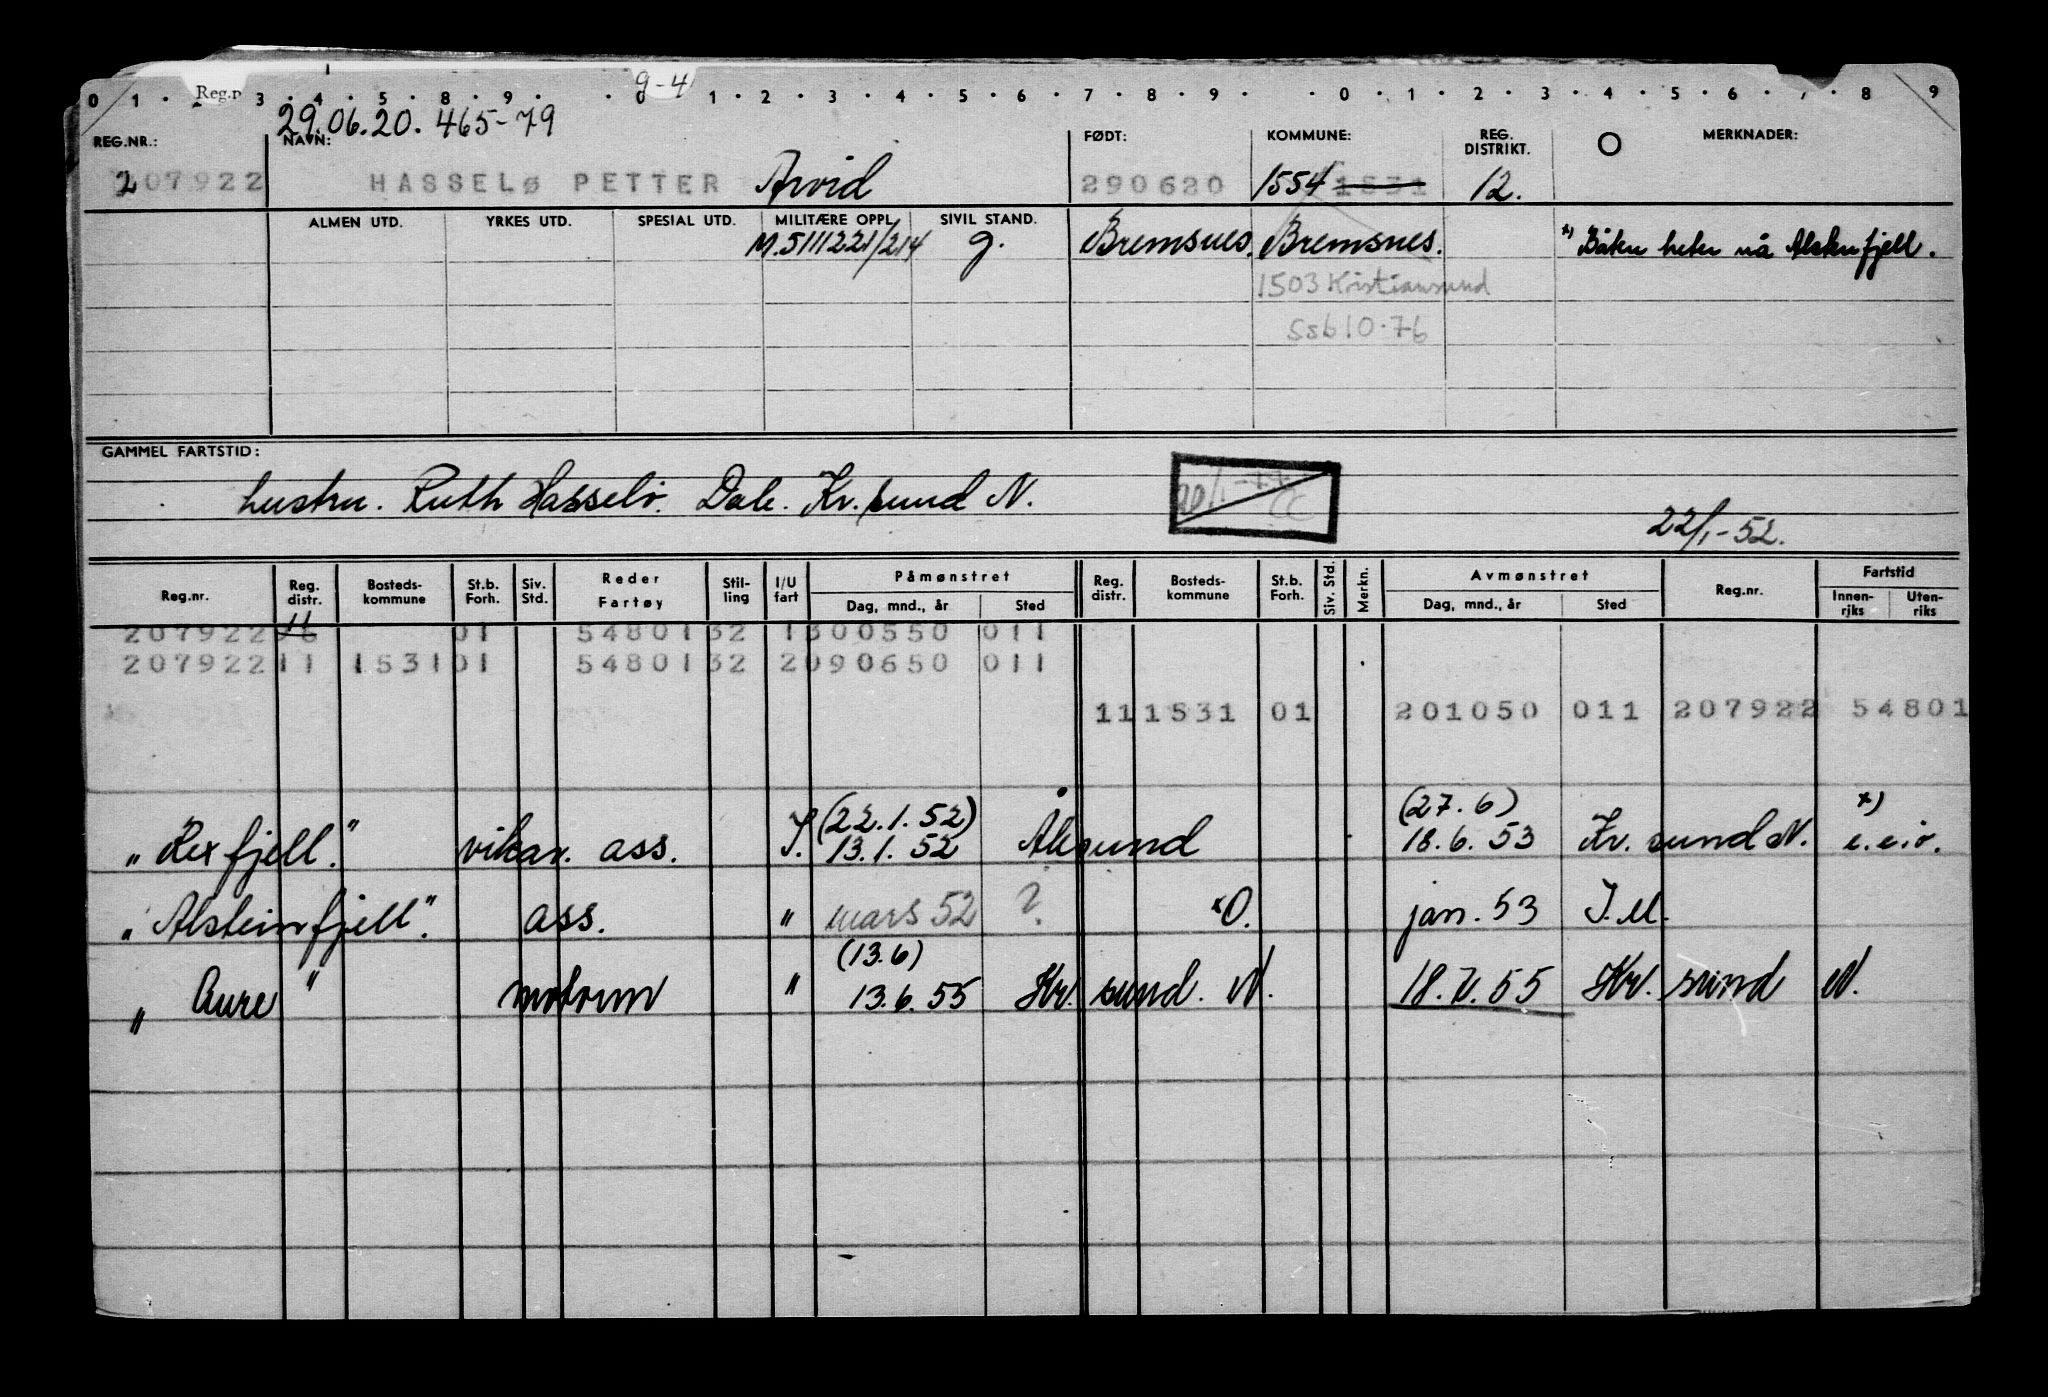 Reg.n g-4
0 1 . 2 . 3 . 4 . 5 . 8 . 9 . . 0 1 . 2 . 3 . 4 . 5 . 6 . 7 . 8 . 9 . . 0 . 1 . 2 . 3 . 4 . 5 . 6 . 7 . 8 9
29.06.20. 465-79
REG.NR.: NAVN: FØDT: KOMMUNE: REG. DISTRIKT. MERKNADER:
207922 HASSELØ PETTER Arvid 290620 1554 1531 12.
ALMEN UTD. YRKES UTD. SPESIAL UTD. MILITÆRE OPPL. SIVIL STAND.
M.5111221/214 g. Bremsnes. Bremsnes. x) Båten heter nå Alstenfjell.
1503 Kristiansund
Ssb 10.76
GAMMEL FARTSTID:
hustru. Ruth Hasselø. Dale. Kr.sund N. 20/1-77 CC
22/1-52.
Reg.nr. Reg. distr. Bosteds-kommune St.b. Forh. Siv. Std. Reder Fartøy Stil-ling I/U fart Påmønstret Dag, mnd., år Sted Reg. distr. Bosteds-kommune St.b. Forh. Siv. Std. Merkn. Avmønstret Dag, mnd., år Sted Reg.nr. Fartstid Innen-riks Uten-riks
11
207922 16 01 54801 32 1 300550 011
207922 11 1531 01 54801 32 2 090650 011
11 1531 01 201050 011 207922 54801
(22.1.52) (27.6) x)
"Rexfjell." vikar. ass. I. 13.1.52 Ålesund 18.6.53 Kr.sund N. e.e.o.
"Alsteinfjell". ass. " mars 52 ? xO. jan. 53 I.M.
(13.6)
"Aure" motorm " 13.6.55 Kr.sund. N. 18.7.55 Kr.sund N.